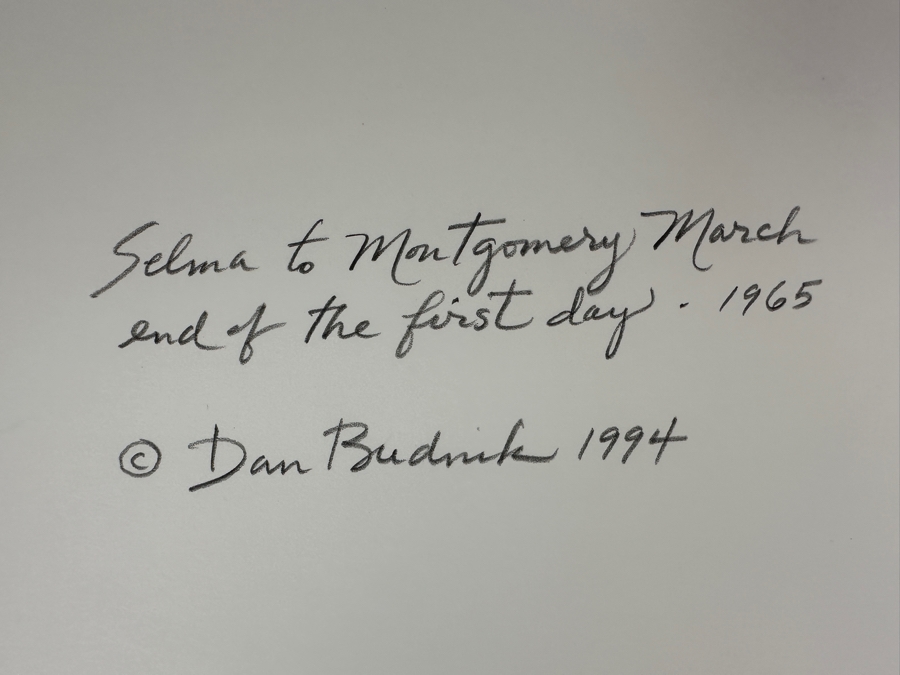 Selma to Montgomery March
end of the first day. 1965
© Dan Budnik 1994